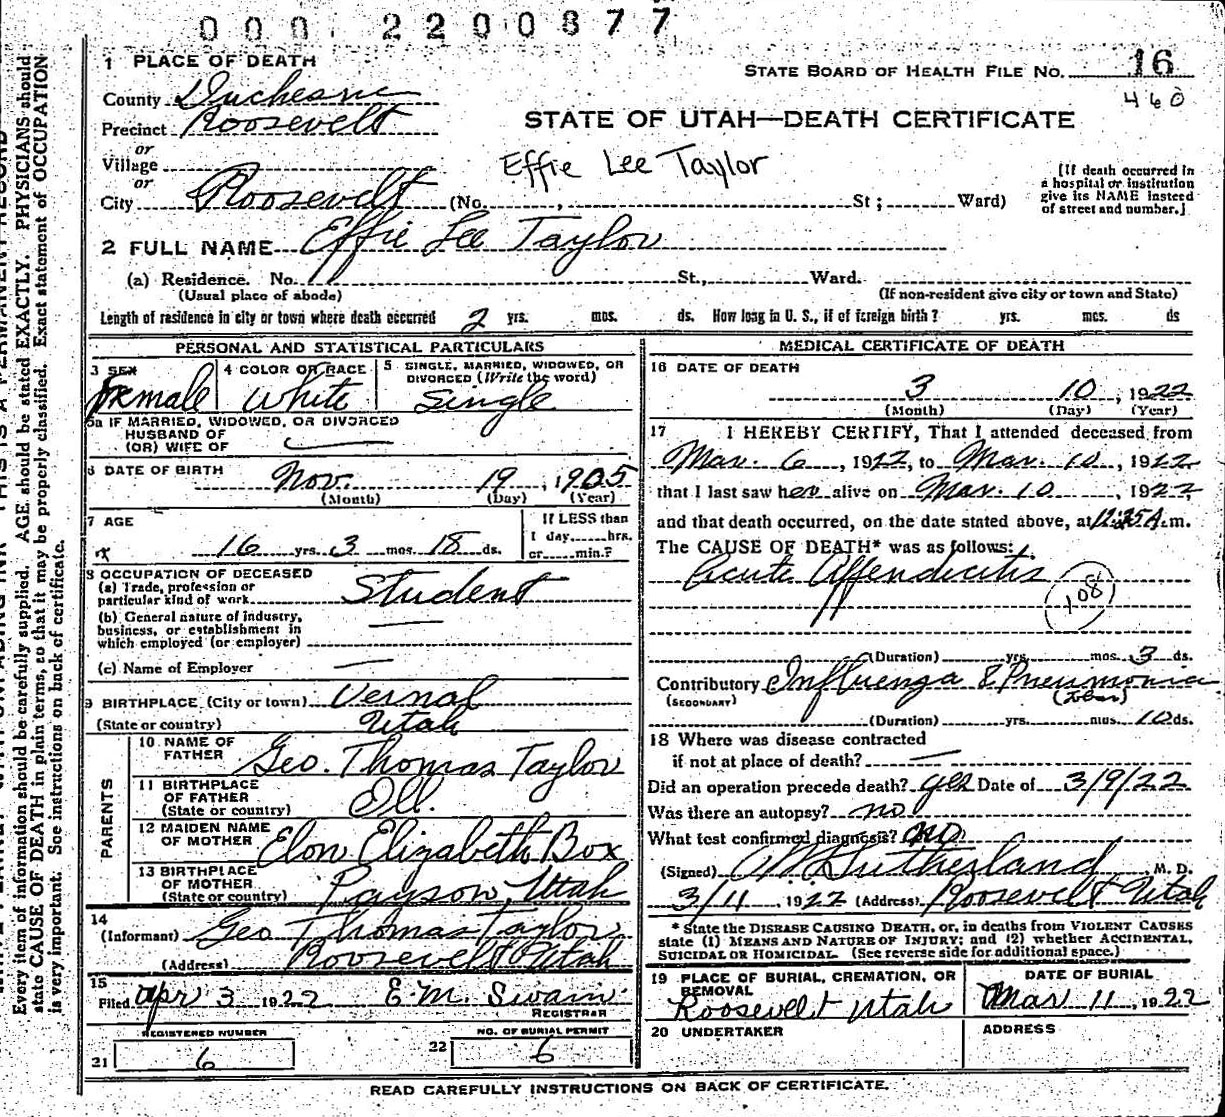 000 2200877
1 PLACE OF DEATH
STATE BOARD OF HEALTH FILE NO. 16
460
County Duchesne
Precinct Roosevelt
STATE OF UTAH—DEATH CERTIFICATE
or
Village
Effie Lee Taylor
or
[If death occurred in
a hospital or institution
give its NAME instead
of street and number.]
City Roosevelt (No. , St ; Ward)
2 FULL NAME Effie Lee Taylor
(a) Residence. No. St., Ward.
(Usual place of abode) (If non-resident give city or town and State)
Length of residence in city or town where death occurred 2 yrs. mos. ds. How long in U. S., if of foreign birth? yrs. mos. ds
PERSONAL AND STATISTICAL PARTICULARS
3 SEX
Female
4 COLOR OR RACE
White
5 SINGLE, MARRIED, WIDOWED, OR
DIVORCED (Write the word)
Single
5a IF MARRIED, WIDOWED, OR DIVORCED
HUSBAND OF
(OR) WIFE OF
6 DATE OF BIRTH
Nov. 19, 1905
(Month) (Day) (Year)
7 AGE
16 yrs. 3 mos. 18 ds.
If LESS than
1 day hrs.
or min.?
8 OCCUPATION OF DECEASED
(a) Trade, profession or
particular kind of work Student
(b) General nature of industry,
business, or establishment in
which employed (or employer)
(c) Name of Employer
9 BIRTHPLACE (City or town) Vernal
(State or country) Utah
PARENTS
10 NAME OF
FATHER Geo. Thomas Taylor
11 BIRTHPLACE
OF FATHER
(State or country) Ill.
12 MAIDEN NAME
OF MOTHER Elon Elizabeth Box
13 BIRTHPLACE
OF MOTHER
(State or country) Payson, Utah
14
(Informant) Geo Thomas Taylor
(Address) Roosevelt Utah
15
Filed Apr 3 1922 E. M. Swain
REGISTRAR
REGISTERED NUMBER
21 6
NO. OF BURIAL PERMIT
22 6
MEDICAL CERTIFICATE OF DEATH
16 DATE OF DEATH
3 10, 1922
(Month) (Day) (Year)
17 I HEREBY CERTIFY, That I attended deceased from
Mar. 6, 1922, to Mar. 10, 1922
that I last saw her alive on Mar. 10, 1922,
and that death occurred, on the date stated above, at A.m.
The CAUSE OF DEATH* was as follows:
Acute Appendicitis
108
(Duration) yrs. mos. 3 ds.
Contributory Influenza & Pneumonia
(SECONDARY)
(Duration) yrs. mos. 10 ds.
18 Where was disease contracted
if not at place of death?
Did an operation precede death? yes Date of 3/9/22
Was there an autopsy? no
What test confirmed diagnosis?
(Signed) Sutherland, M. D.
3/11, 1922 (Address) Roosevelt Utah
* State the DISEASE CAUSING DEATH, or, in deaths from VIOLENT CAUSES
state (1) MEANS AND NATURE OF INJURY; and (2) whether ACCIDENTAL,
SUICIDAL OR HOMICIDAL. (See reverse side for additional space.)
19 PLACE OF BURIAL, CREMATION, OR
REMOVAL
Roosevelt Utah
DATE OF BURIAL
Mar 11, 1922
20 UNDERTAKER
ADDRESS
READ CAREFULLY INSTRUCTIONS ON BACK OF CERTIFICATE.
Every item of information should be carefully supplied. AGE should be stated EXACTLY. PHYSICIANS should
state CAUSE OF DEATH in plain terms, so that it may be properly classified. Exact statement of OCCUPATION
is very important. See instructions on back of certificate.